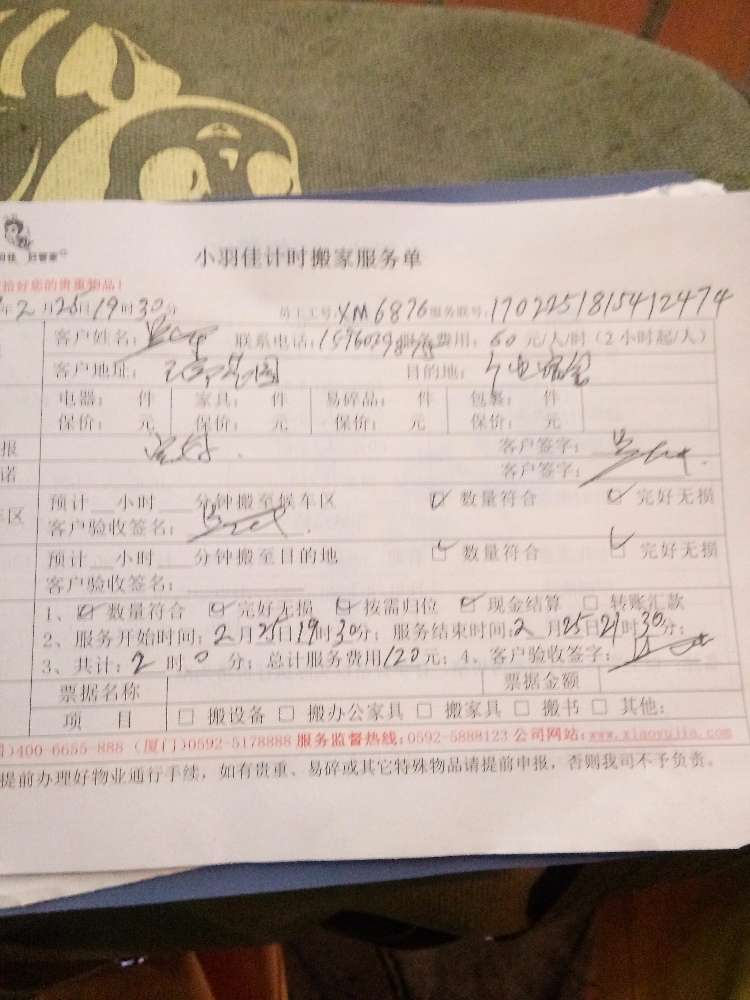 小羽佳计时搬家服务单
拾好您的贵重物品!
年2月25日19时30分 员工工号:XM6876服务联号:1702251815412474
客户姓名: 联系电话: 服务费用:60元/人/时(2小时起/人)
客户地址: 目的地:
电器: 件 家具: 件 易碎品: 件 包裹: 件
保价: 元 保价: 元 保价: 元 保价: 元
报 客户签字:
诺 客户签字:
预计__小时___分钟搬至候车区 ☑数量符合 ☑完好无损
车区 客户验收签名:
预计__小时___分钟搬至目的地 ☑数量符合 ☑完好无损
客户验收签名:
1、☑数量符合 ☑完好无损 ☑按需归位 ☑现金结算 □转账汇款
2、服务开始时间:2月25日19时30分;服务结束时间:2月25日21时30分;
3、共计:2时0分;总计服务费用120元;4、客户验收签字:
票据名称 票据金额
项 目 □搬设备 □搬办公家具 □搬家具 □搬书 □其他:
)400-6655-888 (厦门)0592-5178888 服务监督热线:0592-5888123 公司网站:www.xiaoyujia.com
提前办理好物业通行手续,如有贵重、易碎或其它特殊物品请提前申报,否则我司不予负责。